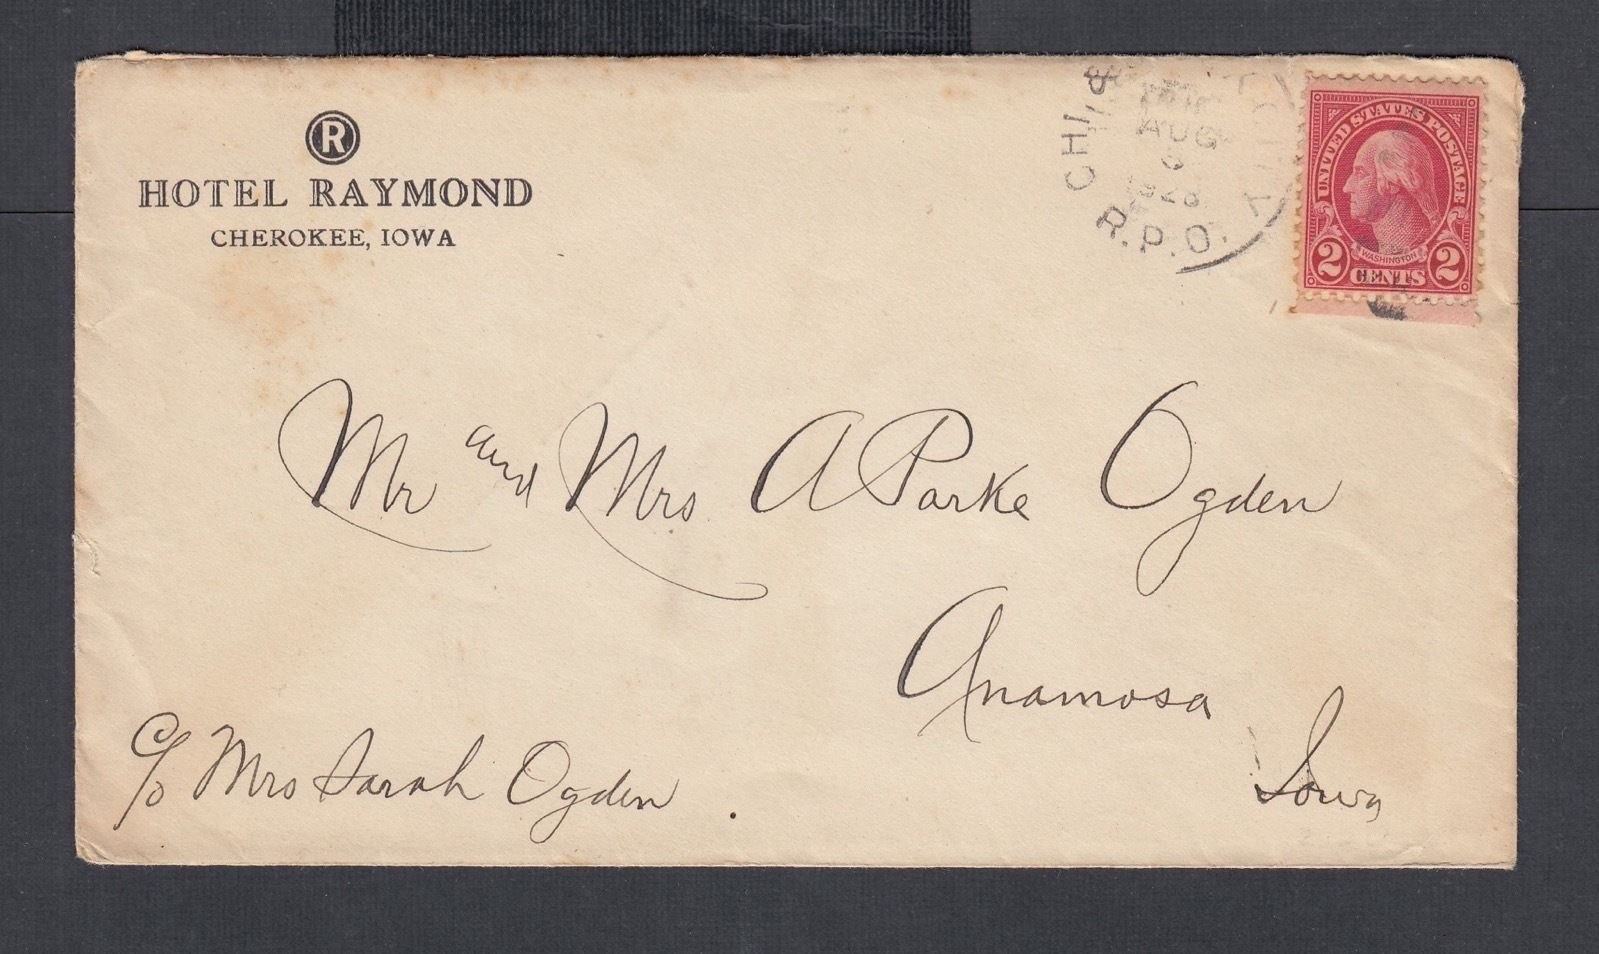 R
HOTEL RAYMOND
CHEROKEE, IOWA
CHI. &
AUG
6
1928
R.P.O.
UNITED STATES POSTAGE
WASHINGTON
2 CENTS 2
Mr and Mrs A Parke Ogden
Anamosa
Iowa
c/o Mrs Sarah Ogden